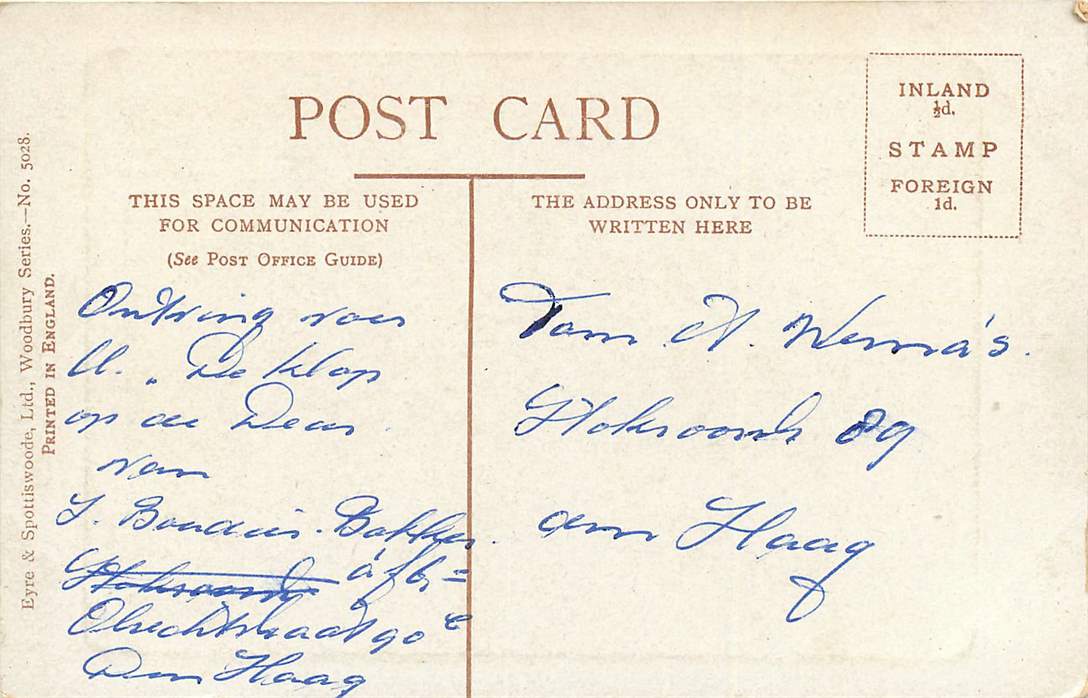 POST CARD
THIS SPACE MAY BE USED
FOR COMMUNICATION
(See POST OFFICE GUIDE)
THE ADDRESS ONLY TO BE
WRITTEN HERE
INLAND
½d.
STAMP
FOREIGN
1d.
Eyre & Spottiswoode, Ltd., Woodbury Series.—No. 5028.
PRINTED IN ENGLAND.
Ontving voor
U. „ De Klop
op de Deur
van
I. Boudier-Bakker.
à f 6,=
Obrechtstraat 90
Den Haag
Fam
89
den Haag